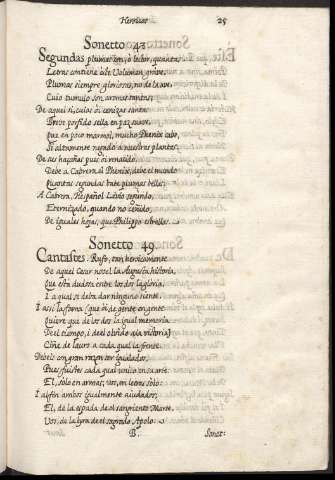 Heroicos 25
Sonetto 42
Segundas plumas son, o lector, quantas
Letras contiene este Volumen grave,
Plumas siempre gloriosas, no de la ave
Cuio tumulo son aromas tantas:
De aquel si, cuias oi cenizas santas
Breve porfido sella en paz suave,
que en poco marmol, mucho Phenix cabe,
Si altamente negado a nuestras plantas.
De sus hazañas pues oi renacido
Debe a Cabrera el Phenix, debe el mundo
quantas segundas bate plumas bellas;
A Cabrera, Español Livio segundo,
Eternizado, quando no ceñido,
De iguales hojas, que Philippo estrellas.
Sonetto 49
Cantastes, Rufo, tan heroicamente
De aquel Cesar novel la Augusta historia,
Que está dudosa entre los dos la gloria,
I a qual se deba dar ninguno siente.
I assi la fama (que oi de gente en gente
Quiere que de los dos la igual memoria
Del tiempo, i del olvido aia victoria)
Ciñe de lauro a cada qual la frente.
Debeis con gran razon ser igualados,
Pues fuistes cada qual unico en su arte:
El, solo en armas, vos, en letras solo:
I al fin ambos igualmente aiudados,
El, de la espada de el sangriento Marte,
Vos, de la lyra de el sagrado Apolo.
B. Sonet: